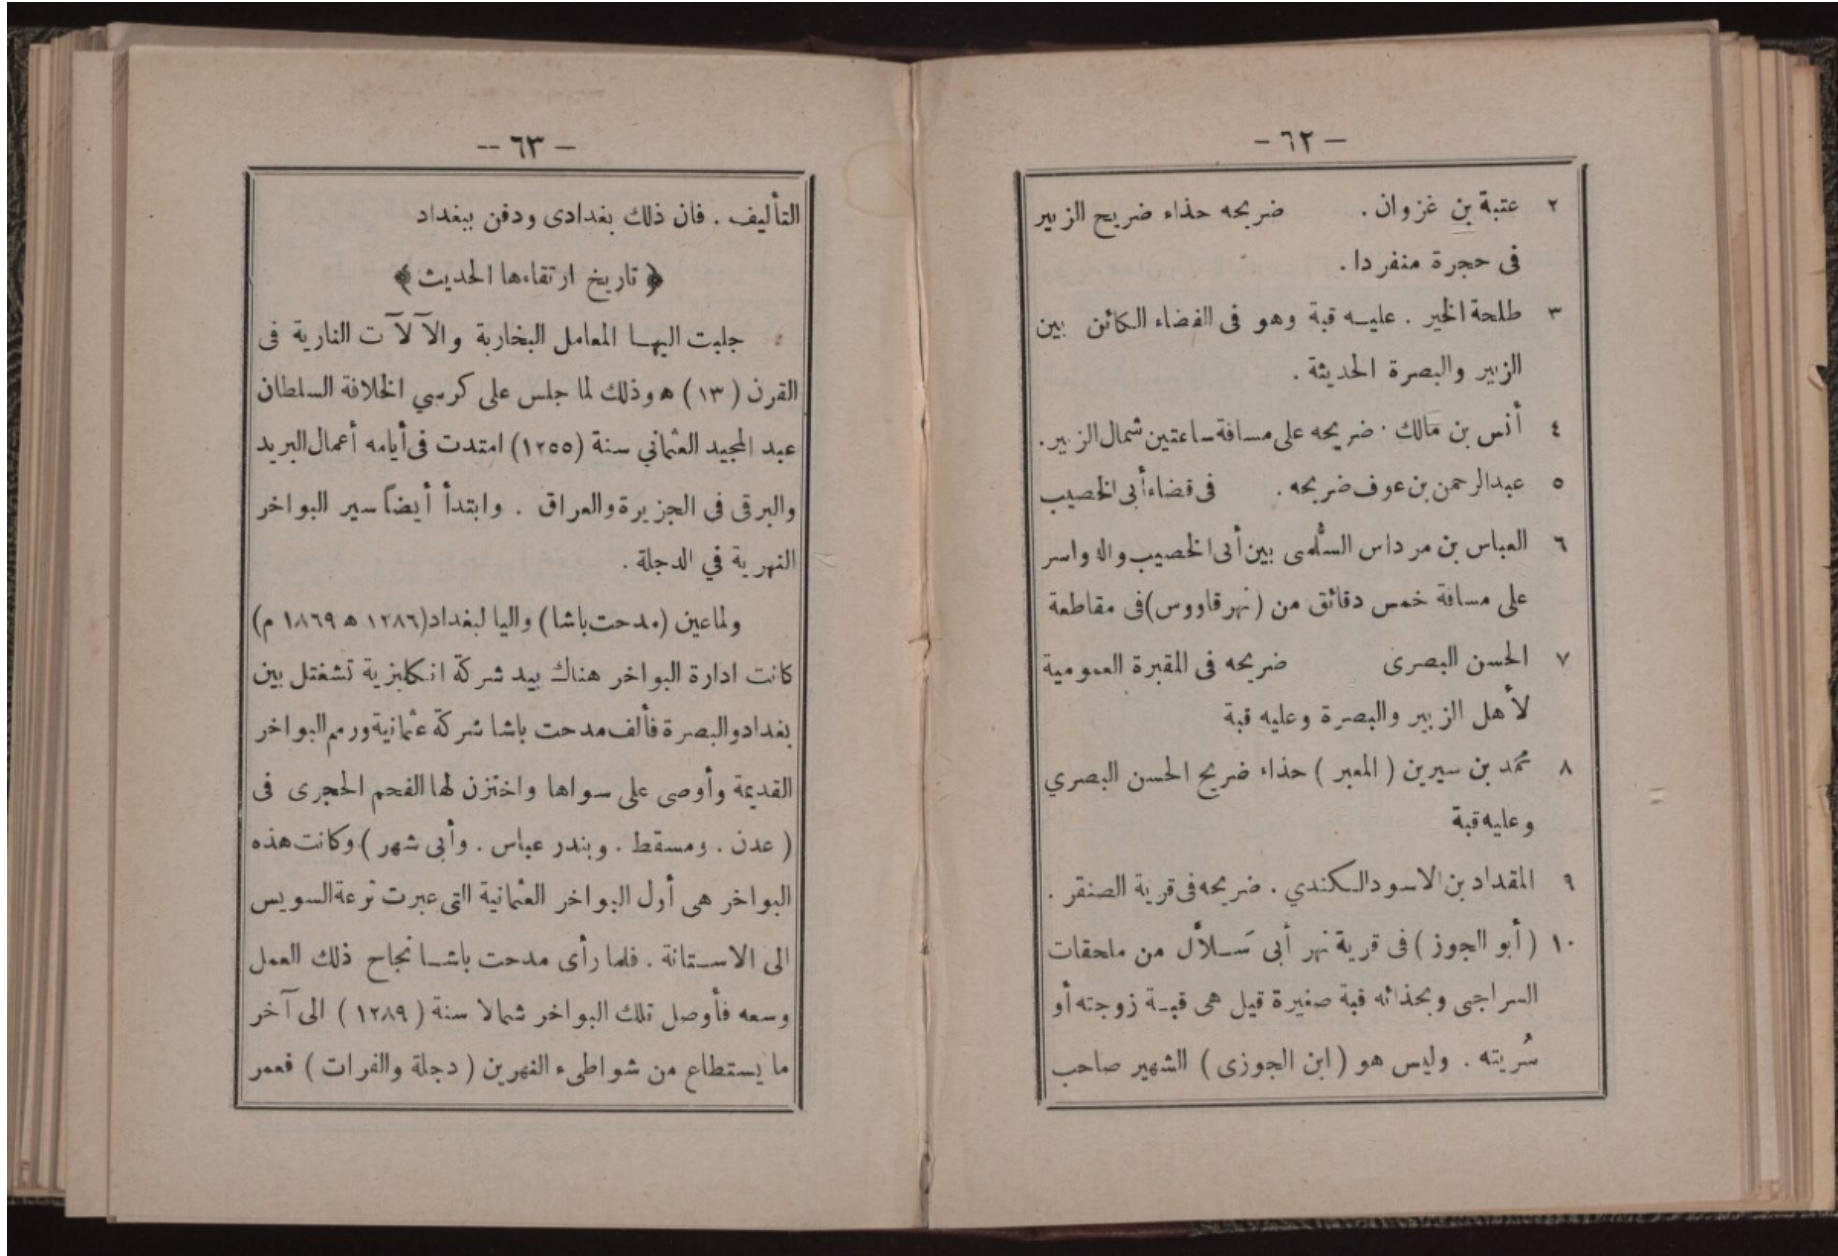 — ٦٢ —
٢ عتبة بن غزوان . ضريحه حذاء ضريح الزبير
فى حجرة منفردا .
٣ طلحة الخير . عليه قبة وهو فى الفضاء الكائن بين
الزبير والبصرة الحديثة .
٤ أنس بن مالك . ضريحه على مسافة ساعتين شمال الزبير .
٥ عبد الرحمن بن عوف ضريحه . فى قضاء أبى الخصيب
٦ العباس بن مرداس السُّلمى بين أبى الخصيب
على مسافة خمس دقائق من (نهر قاووس) فى مقاطعة
٧ الحسن البصرى ضريحه فى المقبرة العمومية
لأهل الزبير والبصرة وعليه قبة
٨ محمد بن سيرين ( المعبر ) حذاء ضريح الحسن البصري
وعليه قبة
٩ المقداد بن الاسود الكندي . ضريحه فى قرية الصنقر .
١٠ ( أبو الجوز ) فى قرية نهر أبى سَلاَّل من ملحقات
السراجى وبحذائه قبة صغيرة قيل هى قبة زوجته أو
سُريته . وليس هو ( ابن الجوزى ) الشهير صاحب
— ٦٣ —
التأليف . فان ذلك بغدادى ودفن ببغداد
﴿ تاريخ ارتقاءها الحديث ﴾
جلبت اليها المعامل البخارية والآلآت النارية فى
القرن ( ١٣ ) ه وذلك لما جلس على كرسي الخلافة السلطان
عبد المجيد العثماني سنة (١٢٥٥) امتدت فى أيامه أعمال البريد
والبرقى فى الجزيرة والعراق . وابتدأ أيضاً سير البواخر
النهرية في الدجلة .
ولما عين (مدحت باشا) واليا لبغداد (١٢٨٦ ه ١٨٦٩ م)
كانت ادارة البواخر هناك بيد شركة انكليزية تشغتل بين
بغداد والبصرة فألف مدحت باشا شركة عثمانية ورمم البواخر
القديمة وأوصى على سواها واختزن لها الفحم الحجرى فى
( عدن . ومسقط . وبندر عباس . وأبى شهر ) وكانت هذه
البواخر هى أول البواخر العثمانية التى عبرت ترعة السويس
الى الاستانة . فلما رأى مدحت باشا نجاح ذلك العمل
وسعه فأوصل تلك البواخر شمالا سنة ( ١٢٨٩ ) الى آخر
ما يستطاع من شواطىء النهرين ( دجلة والفرات ) فعمر